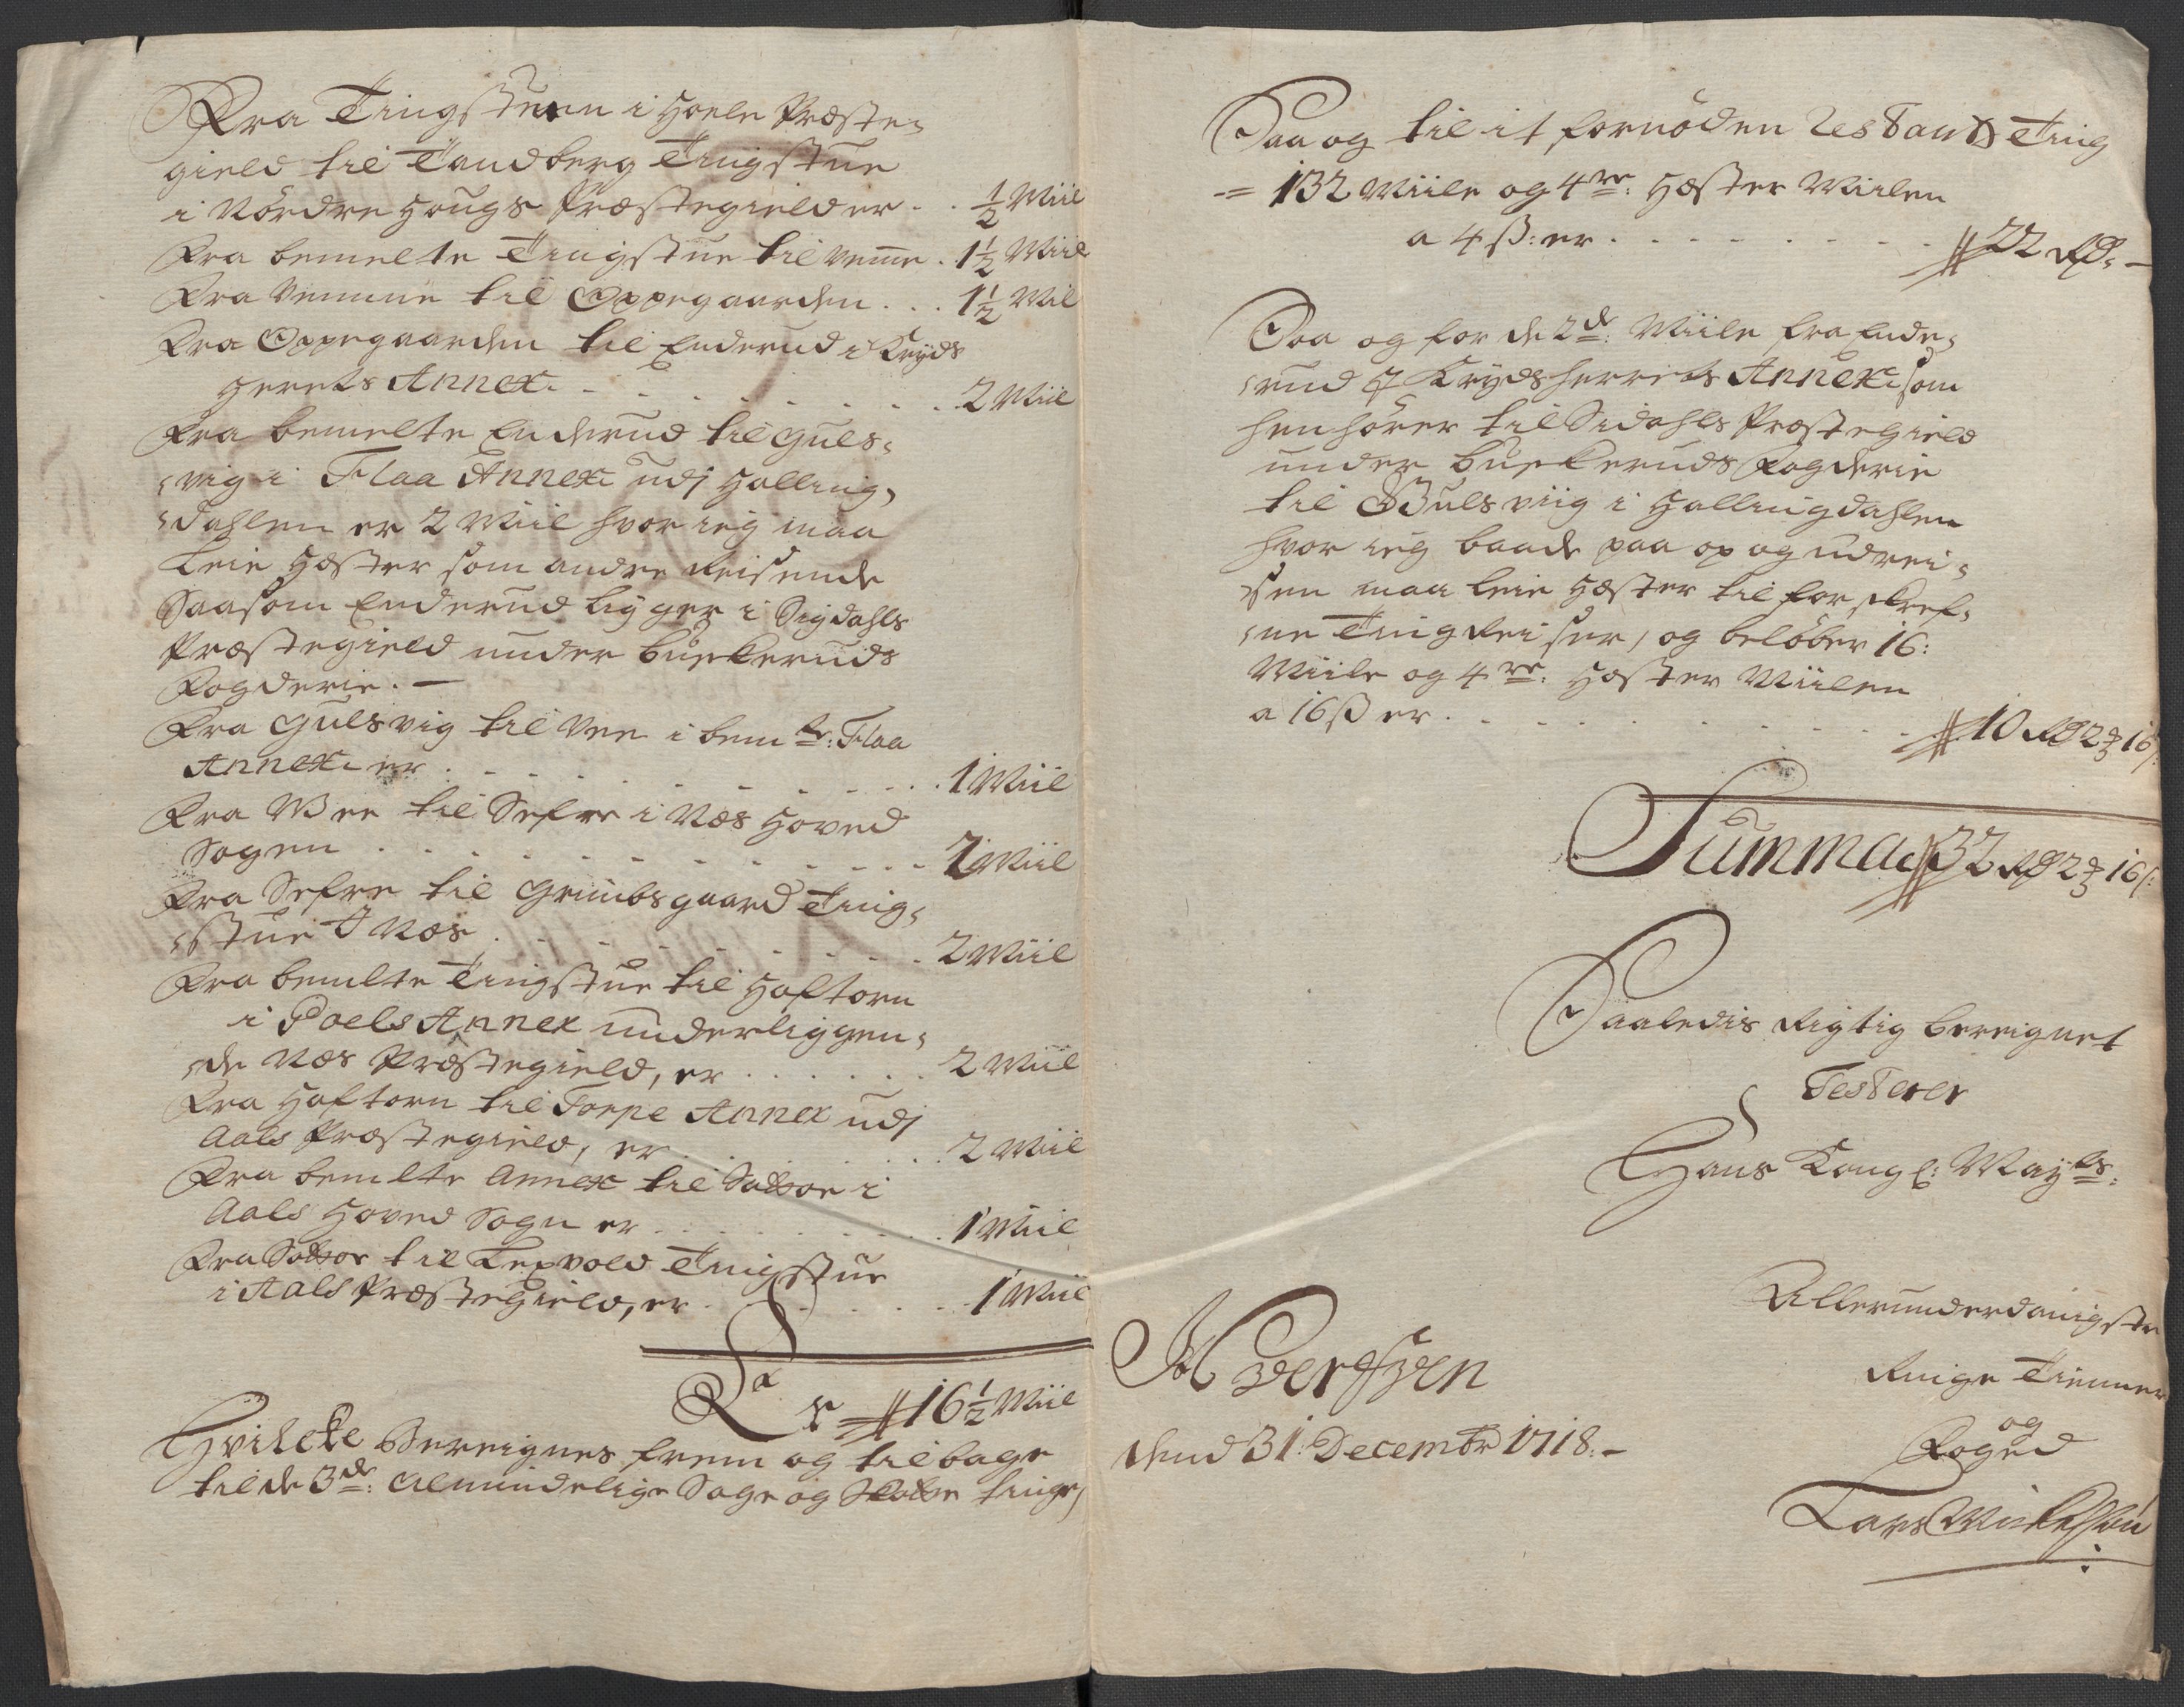 Fra Tingstuen i Hoele Præste-
gield til Tandberg Tingstue
i Nördre Hougs Præstegield er . . ½ Miil
Fra bemelte Tingstue til Veme . 1½ Miil
Fra Vemme til Oppegaarden . . . 1½ Mil
Fra Oppegaarden til Enderud i Kryds
Herrets Annex . . . . . . 2 Miil
Fra bemelte Enderud til Guls-
vig i Flaa Annex udj Halling-
dahlen er 2 Miil hvor ieg maa
Leie Hæster som andre Reisende
Saasom Enderud ligger i Sigdahls
Præstegield under Buskeruds
Fogderie. —
Fra Gulsvig til Vee i bem.te: Flaa
Annex er . . . . . . 1 Miil
Fra Vee til Sefre i Næs Hoved
Sogen . . . . . . 2 Miil
Fra Sefre til Grimbsgaard Ting-
stue I Næs . . . . . . 2 Miil
Fra bemelte Tingstue til Haftorn
i Goels Annex underliggen-
de Næs Præstegield, er . . . . . . 2 Miil
Fra Haftorn til Torpe Annex udj
Aals Præstegield, er . . . . . . 2 Miil
Fra bemelte Annex til i
Aals Hoved Sogn er . . . . . . 1 Miil
Fra til Lexvold Tingstue
i Aals Præstegield, er . . . . . . 1 Miil
La
Er 16½ Miil
Hvilcke Bereignes frem og tilbage
til de 3de: Almindelige Sage og Skatte Tinge,
Saa og til it fornöden Restants Ting
= 132 Miile og 4re: Hæster Miilen
a 4 ß: er . . . . . . 22 Rd: —
Saa og for de 2de: Miile fra Ende-
rud I Krydsherrets Annex som
henhörer til Sidahls Præstegield
under Buskeruds Fogderie
til Gulsviig i Hallingdahlen
hvor ieg baade paa op og udrei-
sen maa leie Hæster til forskref-
ne Ting Reiser, og belöber 16:
Miile og 4re: Hæster Miilen
a 16 ß er . . . . . . 10 Rd 2 16 ß:
Summa 32 Rd 2 16 ß:
Saaledis Rigtig bereignet
Testerer
Hans Kongl: Mayts:
Allerunderdanigste
Ringe Tienner
og
Foged
dend 31: Decembr 1718. —